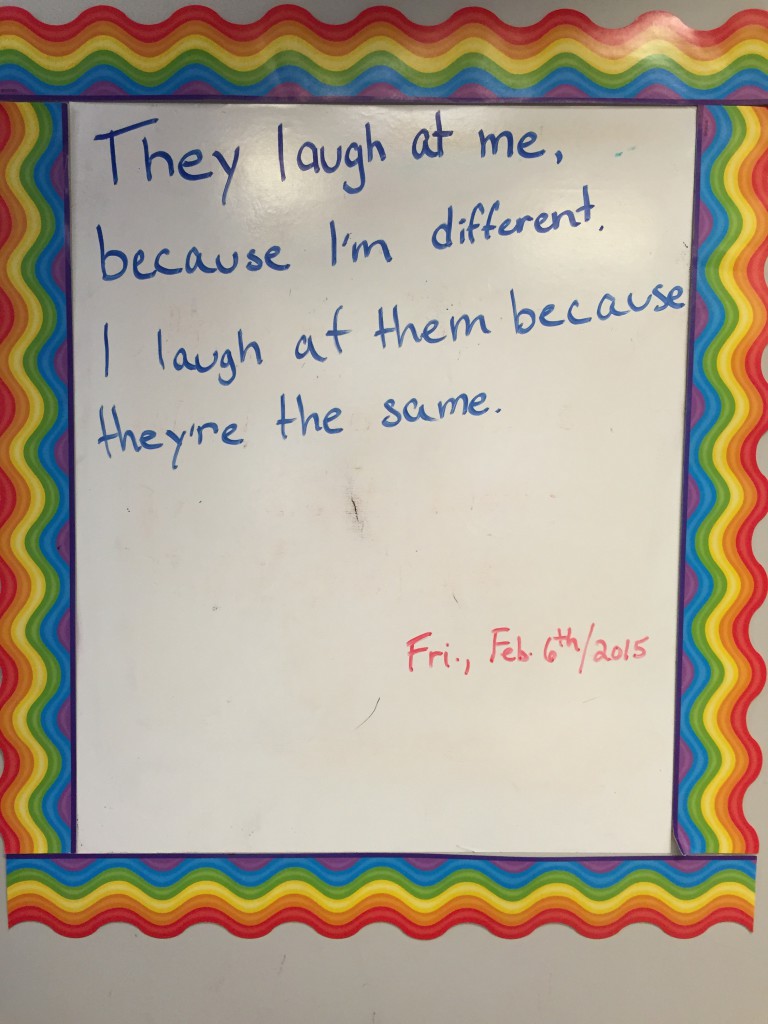 They laugh at me,
because I'm different.
I laugh at them because
they're the same.
Fri., Feb. 6th/2015